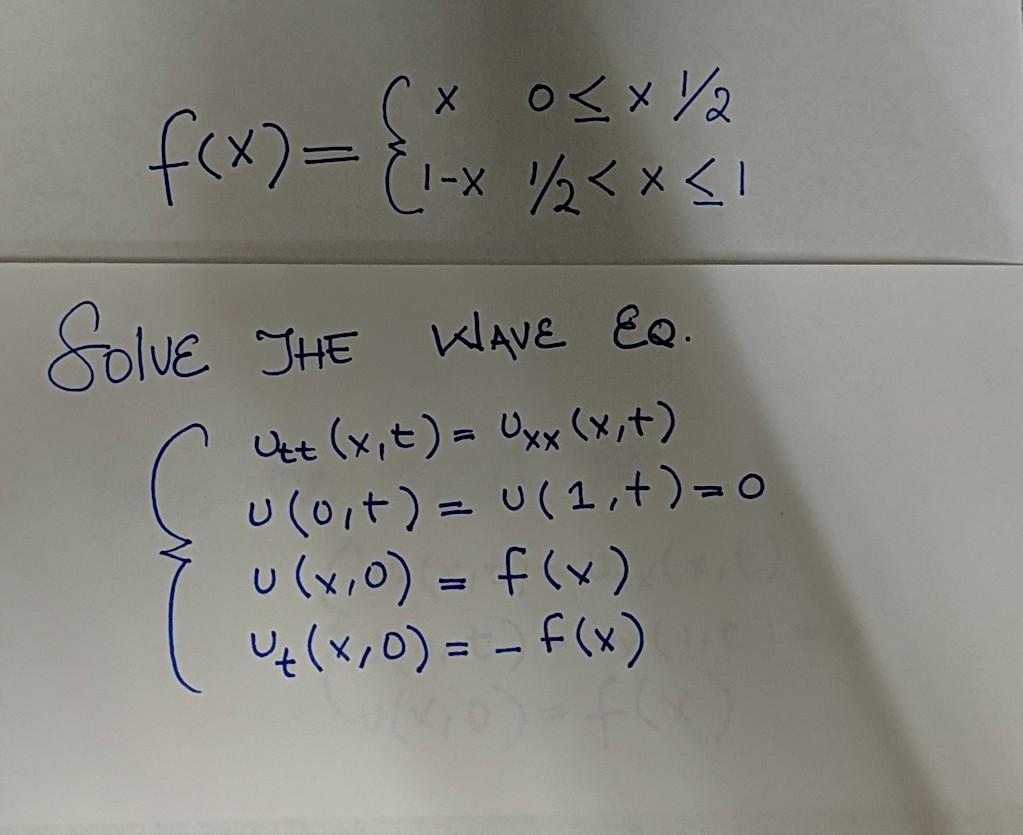 f(x) = { x 0 ≤ x 1/2
1-x 1/2 < x ≤ 1
SOLVE THE WAVE EQ.
{ Utt (x,t) = Uxx (x,t)
U(0,t) = U(1,t) = 0
U(x,0) = f(x)
Ut(x,0) = - f(x)